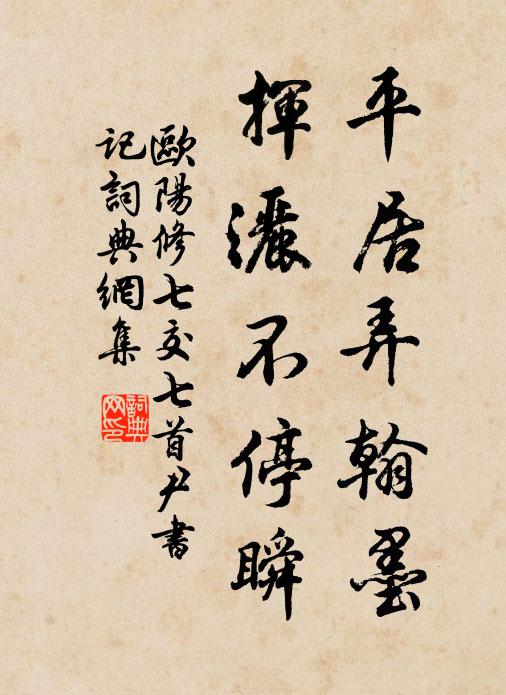 平居弄翰墨
揮灑不停瞬
歐陽修七交七首尹書
記詞典網集
詞典網印